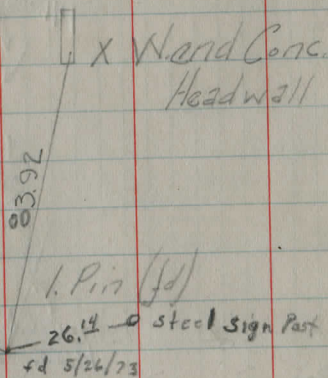 X W. end Conc.
Headwall
83.92
I. Pin (fd)
26.14 steel sign Post
fd 5/26/73